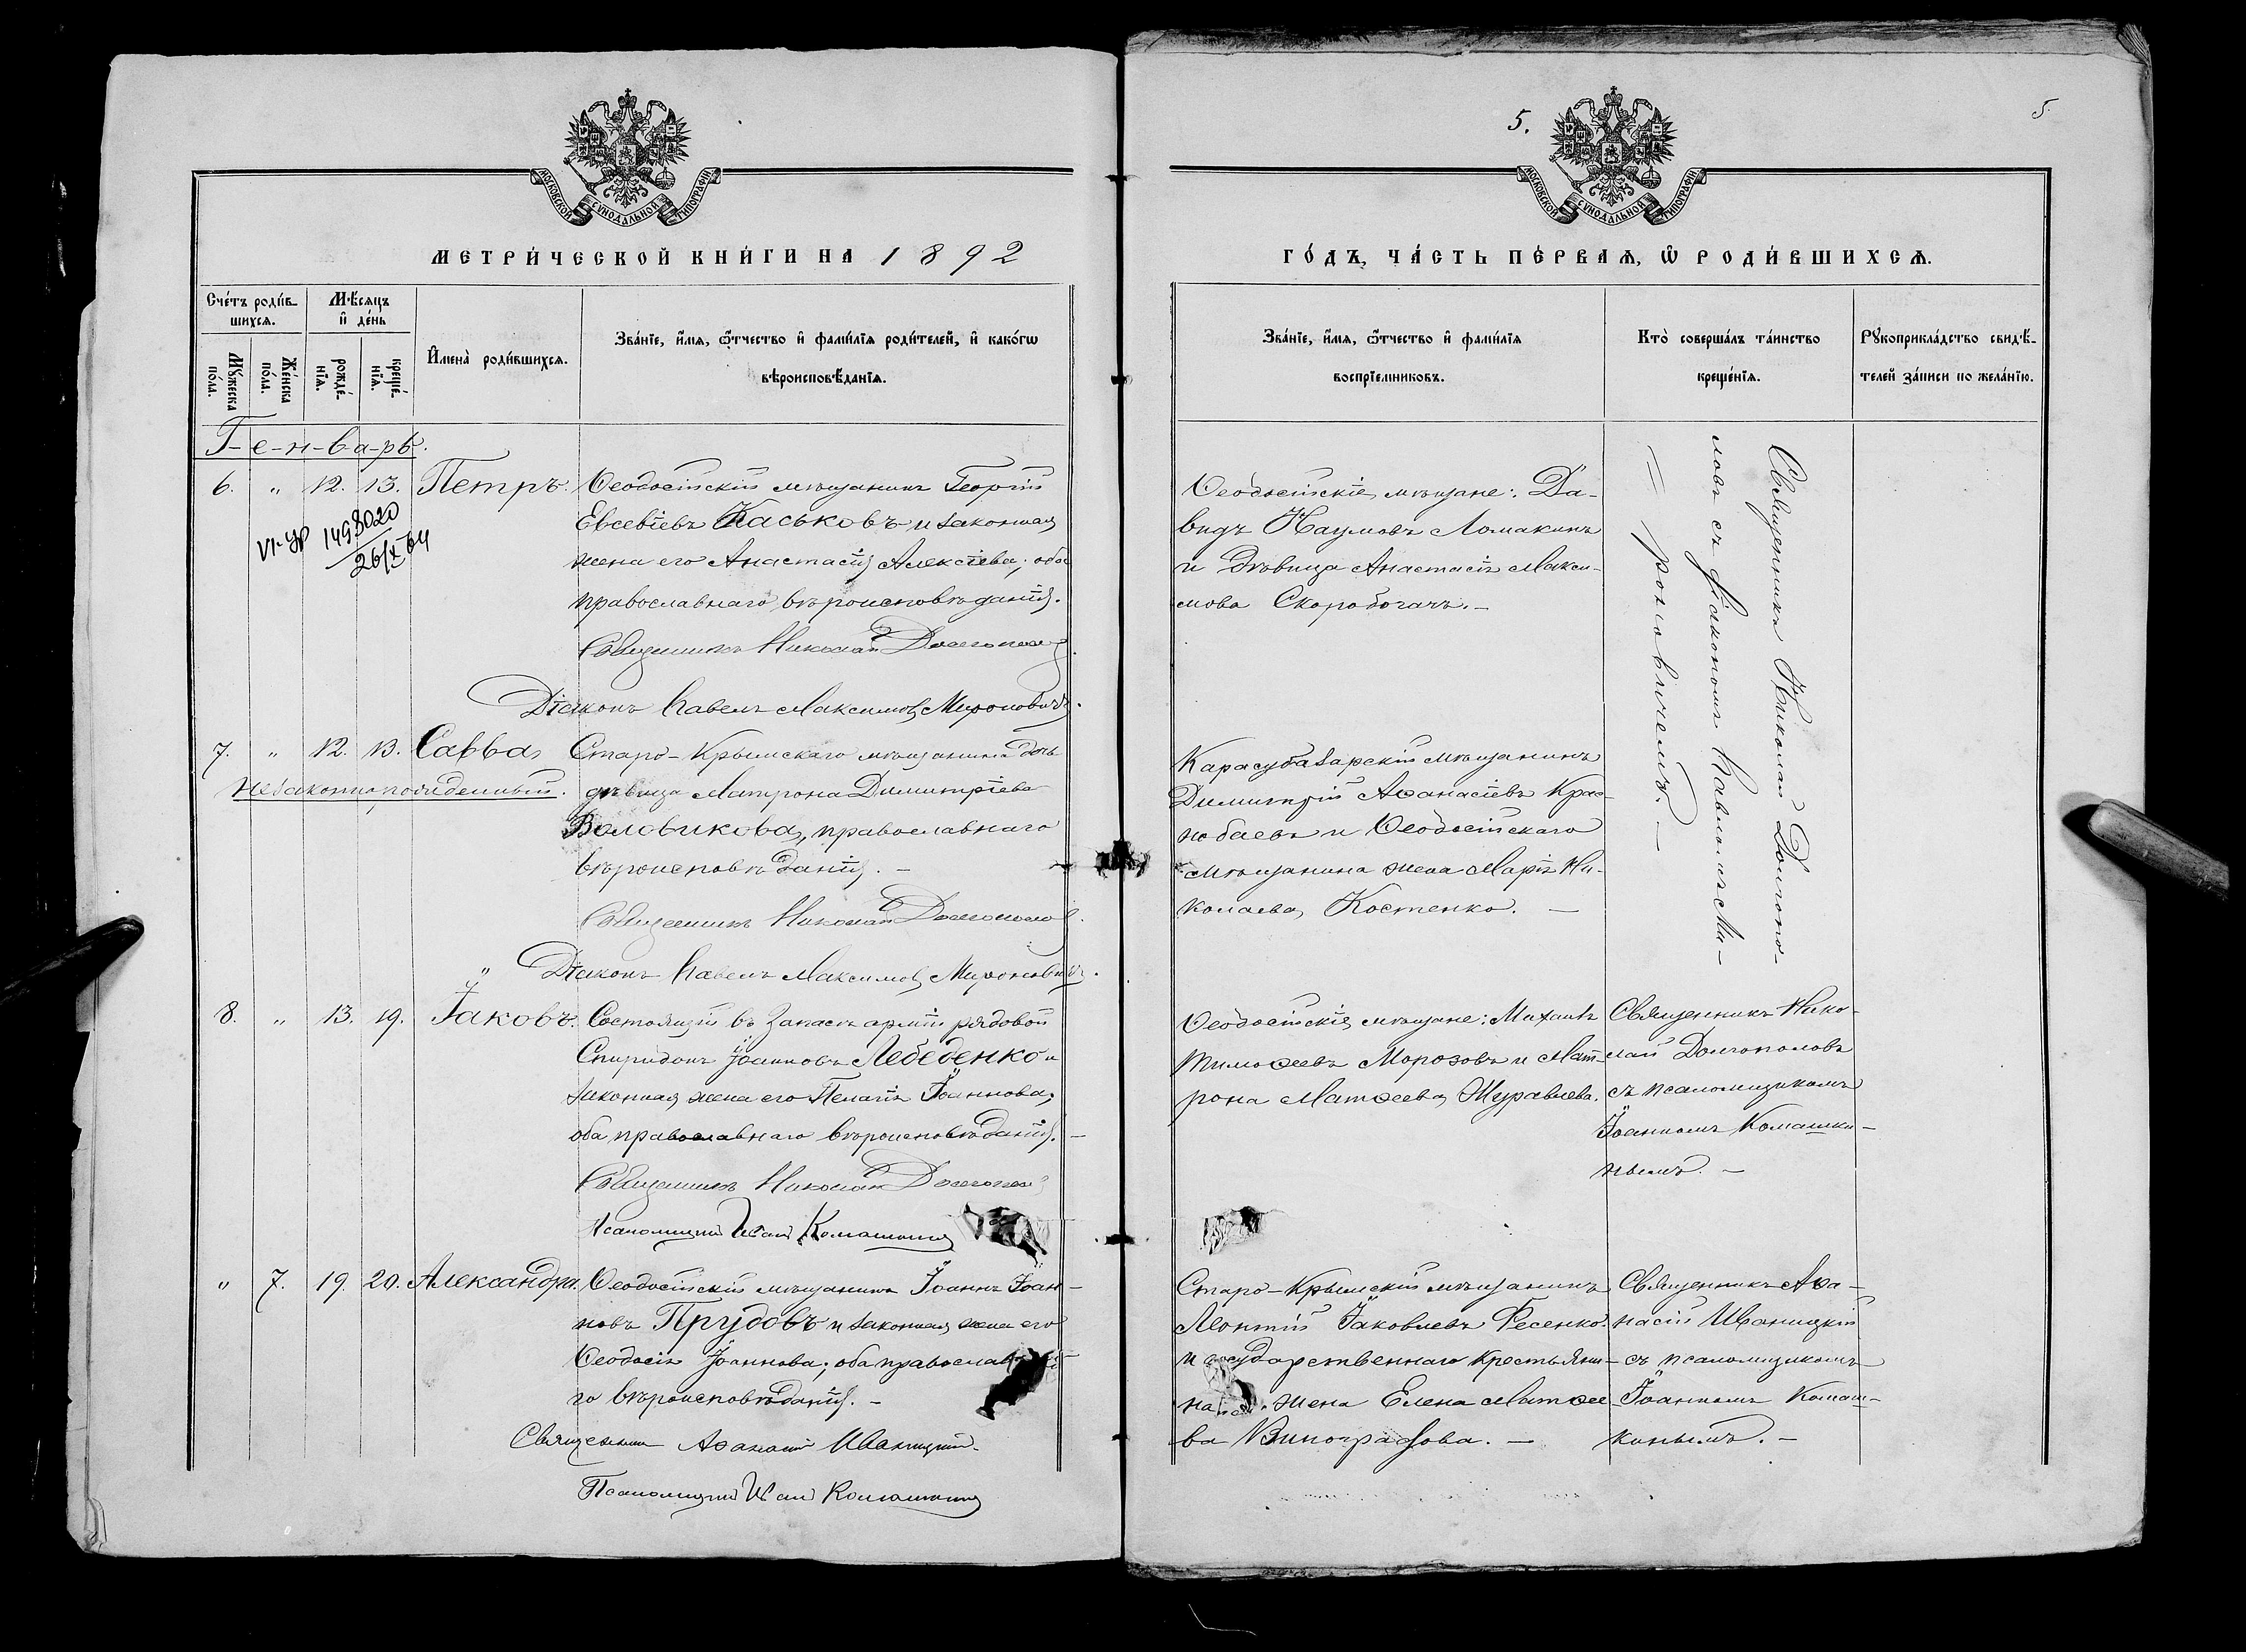 5.
5
МОСКОВСКОЙ СУНОДАЛЬНОЙ ТИПОГРАФІИ
МОСКОВСКОЙ СУНОДАЛЬНОЙ ТИПОГРАФІИ
МЕТРИ́ЧЕСКОЙ КНИ́ГИ НА 1892
ГО́ДЪ, ЧА́СТЬ ПЕ́РВАѦ, Ѽ РОДИ́ВШИХСѦ.
Сче́тъ роди́в-
шихсѧ.
Мѣ́сѧцъ
и҆ де́нь
Мꙋ́жеска
по́ла.
Же́нска
по́ла.
рожде́-
нїѧ.
креще́-
нїѧ.
И҆мена̀ роди́вшихсѧ.
Зва́нїе, и҆́мѧ, ѻ҆́тчество и҆ фами́лїѧ роди́телей, и҆ како́гѡ
вѣроисповѣ́данїѧ.
Зва́нїе, и҆́мѧ, ѻ҆́тчество и҆ фами́лїѧ
воспрїе́мниковъ.
Кто̀ соверша́лъ та́инство
креще́нїѧ.
Рꙋкоприкла́дство свидѣ́-
телей за́писи по жела́нїю.
Г-е-н-в-а-рь.
6. " 12. 13. Петръ.
Ѳеодосійскій мѣщанинъ Георгій
Евсевіевъ Каськовъ и законная
жена его Анастасія Алексіева; оба
православнаго вѣроисповѣданія.
Священникъ Николай Долгополов
Діаконъ Павелъ Максимов Мироновичъ.
149 8020
26/X 64
Ѳеодосійскіе мѣщане: Да-
видъ Наумовъ Ломакинъ
и дѣвица Анастасія Макси-
мова Скоробогачъ. –
Священникъ Николай Долгопо-
ловъ съ діакономъ Павломъ Ми-
роновичемъ. –
7. " 12. 13. Савва
незаконнорожденный.
Старо-Крымскаго мѣщанина дочь
дѣвица Матрона Димитріева
Воловикова, православнаго
вѣроисповѣданія. –
Священникъ Николай Долгополов.
Діаконъ Павелъ Максимов Мироновичъ.
Карасубазарскій мѣщанинъ
Димитрій Аѳанасіевъ Крас-
нобаевъ и Ѳеодосійскаго
мѣщанина жена Марія Ни-
колаева Костенко. –
8. " 13. 19. Іаковъ.
Состоящій въ запасѣ арміи рядовой
Спиридонъ Іоанновъ Лебеденко и
законная жена его Пелагія Іоаннова;
оба православнаго вѣроисповѣданія. –
Священникъ Николай Долгополов
Псаломщикъ Иван Комашкинъ
Ѳеодосійскіе мѣщане: Михаилъ
Тимоѳеевъ Морозовъ и Мат-
рона Матѳеева Журавлева.
Священникъ Нико-
лай Долгополовъ
съ псаломщикомъ
Іоанномъ Комашки-
нымъ. –
" 7. 19. 20. Александра.
Ѳеодосійскій мѣщанинъ Іоаннъ Іоан-
новъ Прудовъ и законная жена его
Ѳеодосія Іоаннова; оба православна-
го вѣроисповѣданія. –
Священник Аѳанасий Иваницкий.
Псаломщик Иван Комашкинъ
Старо-Крымскій мѣщанинъ
Леонтій Іаковлевъ Фесенко
и государственнаго крестьяни-
на жена Елена Матѳее-
ва Виноградова. –
Священникъ Аѳа-
насій Иваницкій
съ псаломщикомъ
Іоанномъ Комаш-
кинымъ. –